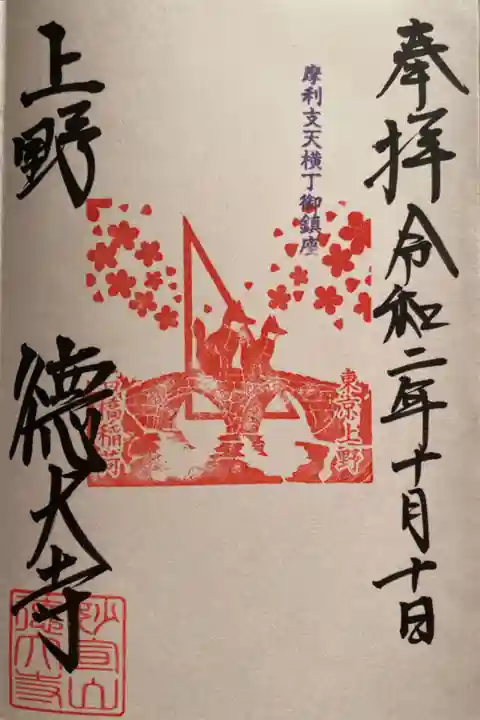 奉拝 令和二年十月十日
摩利支天横丁御鎮座
上野
上野 徳大寺
妙宣山
徳大寺